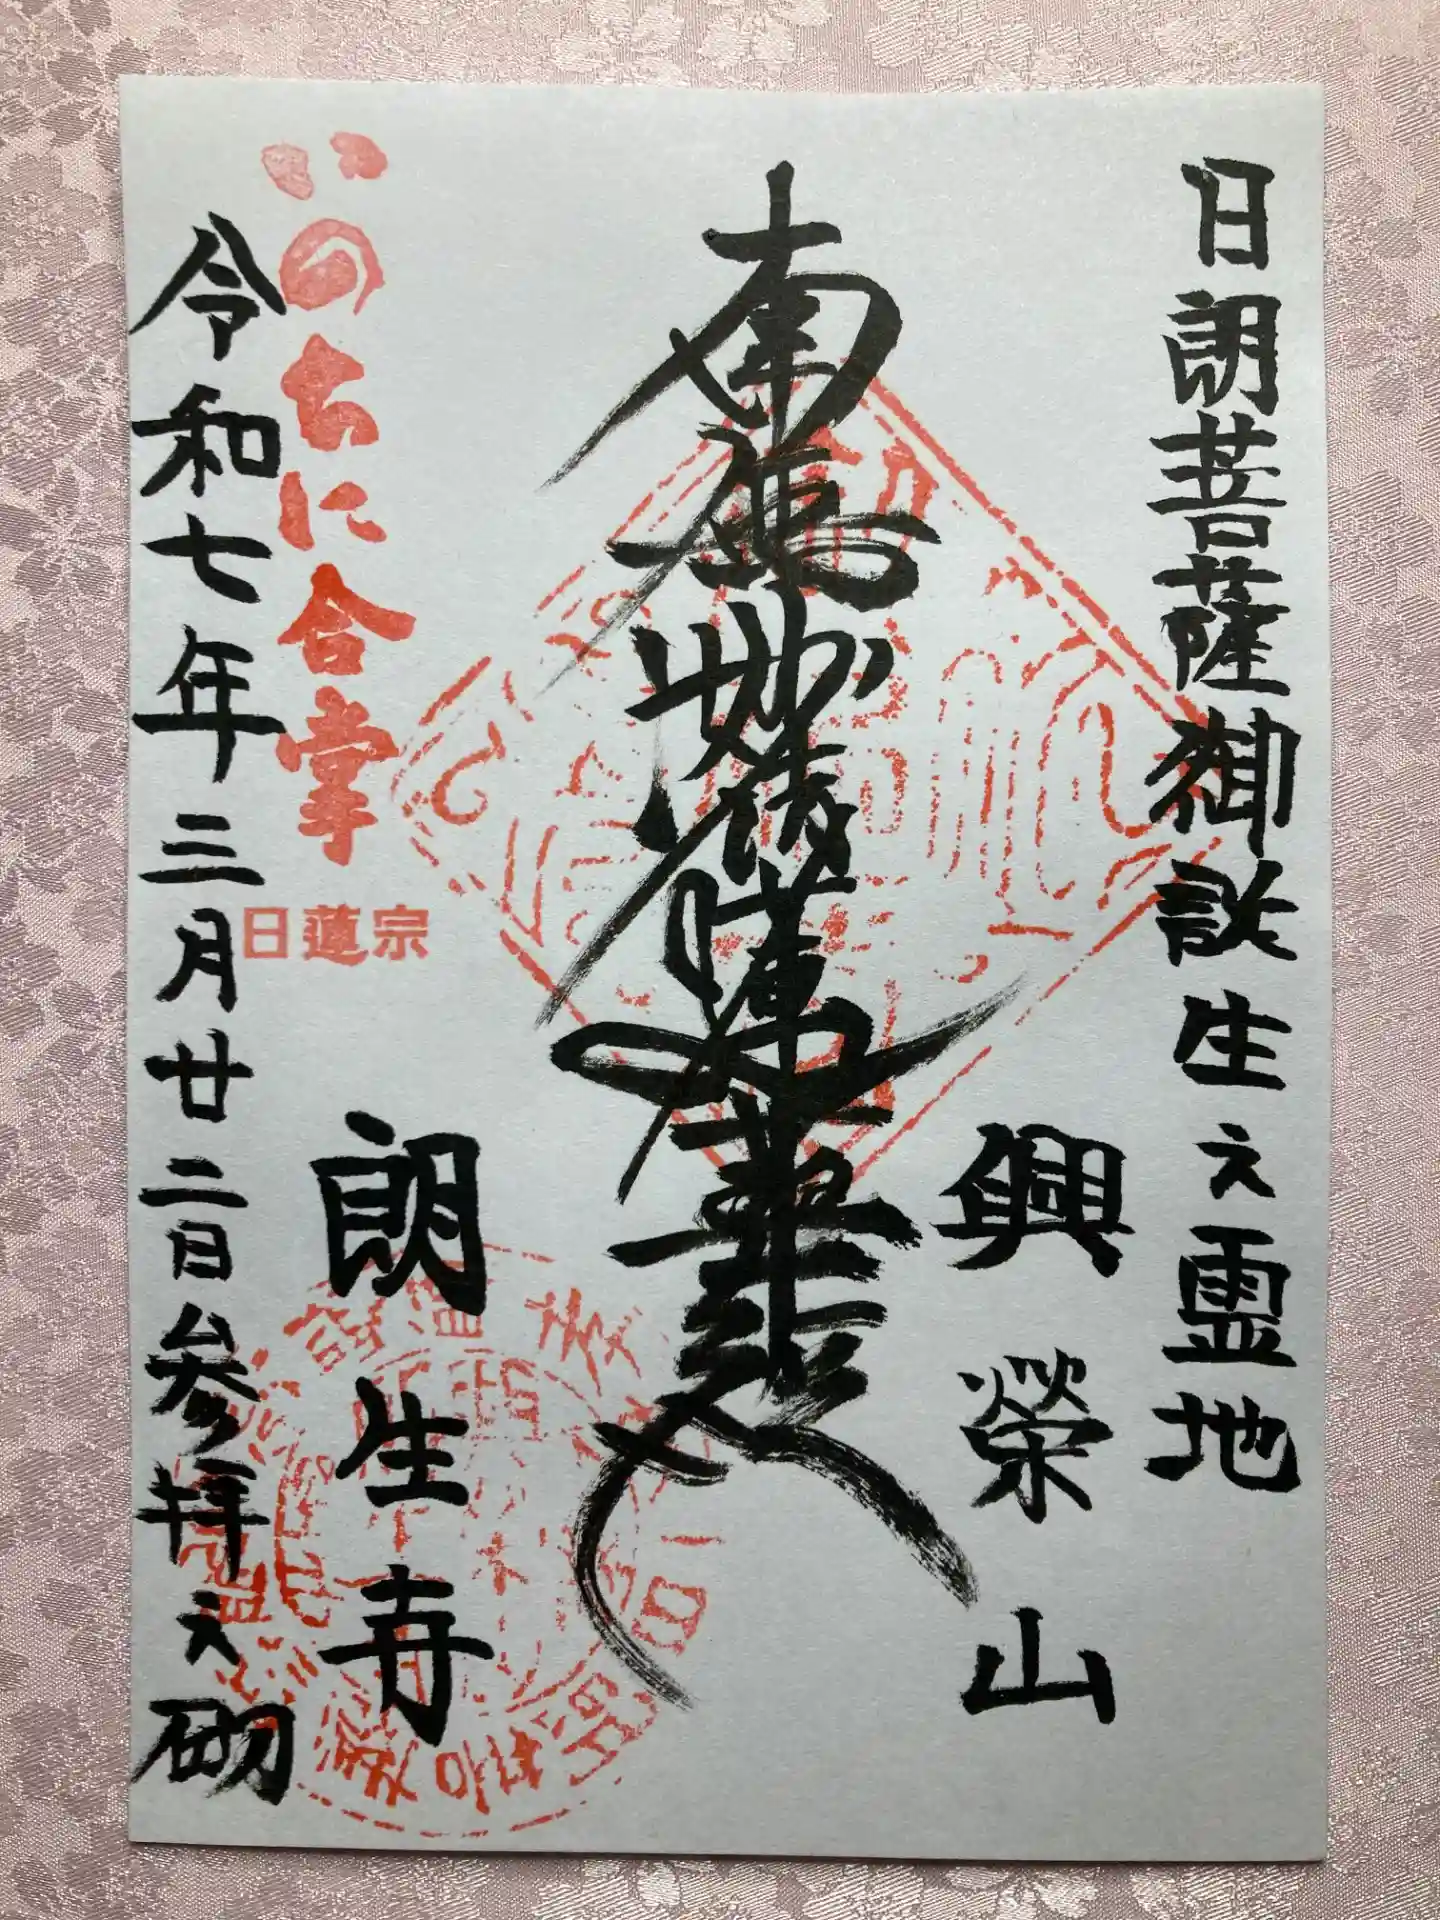 日朗菩薩御誕生之霊地
興榮山
南無妙法蓮華経
朗生寺
いのちに合掌
日蓮宗
令和七年三月廿二日参拝之砌